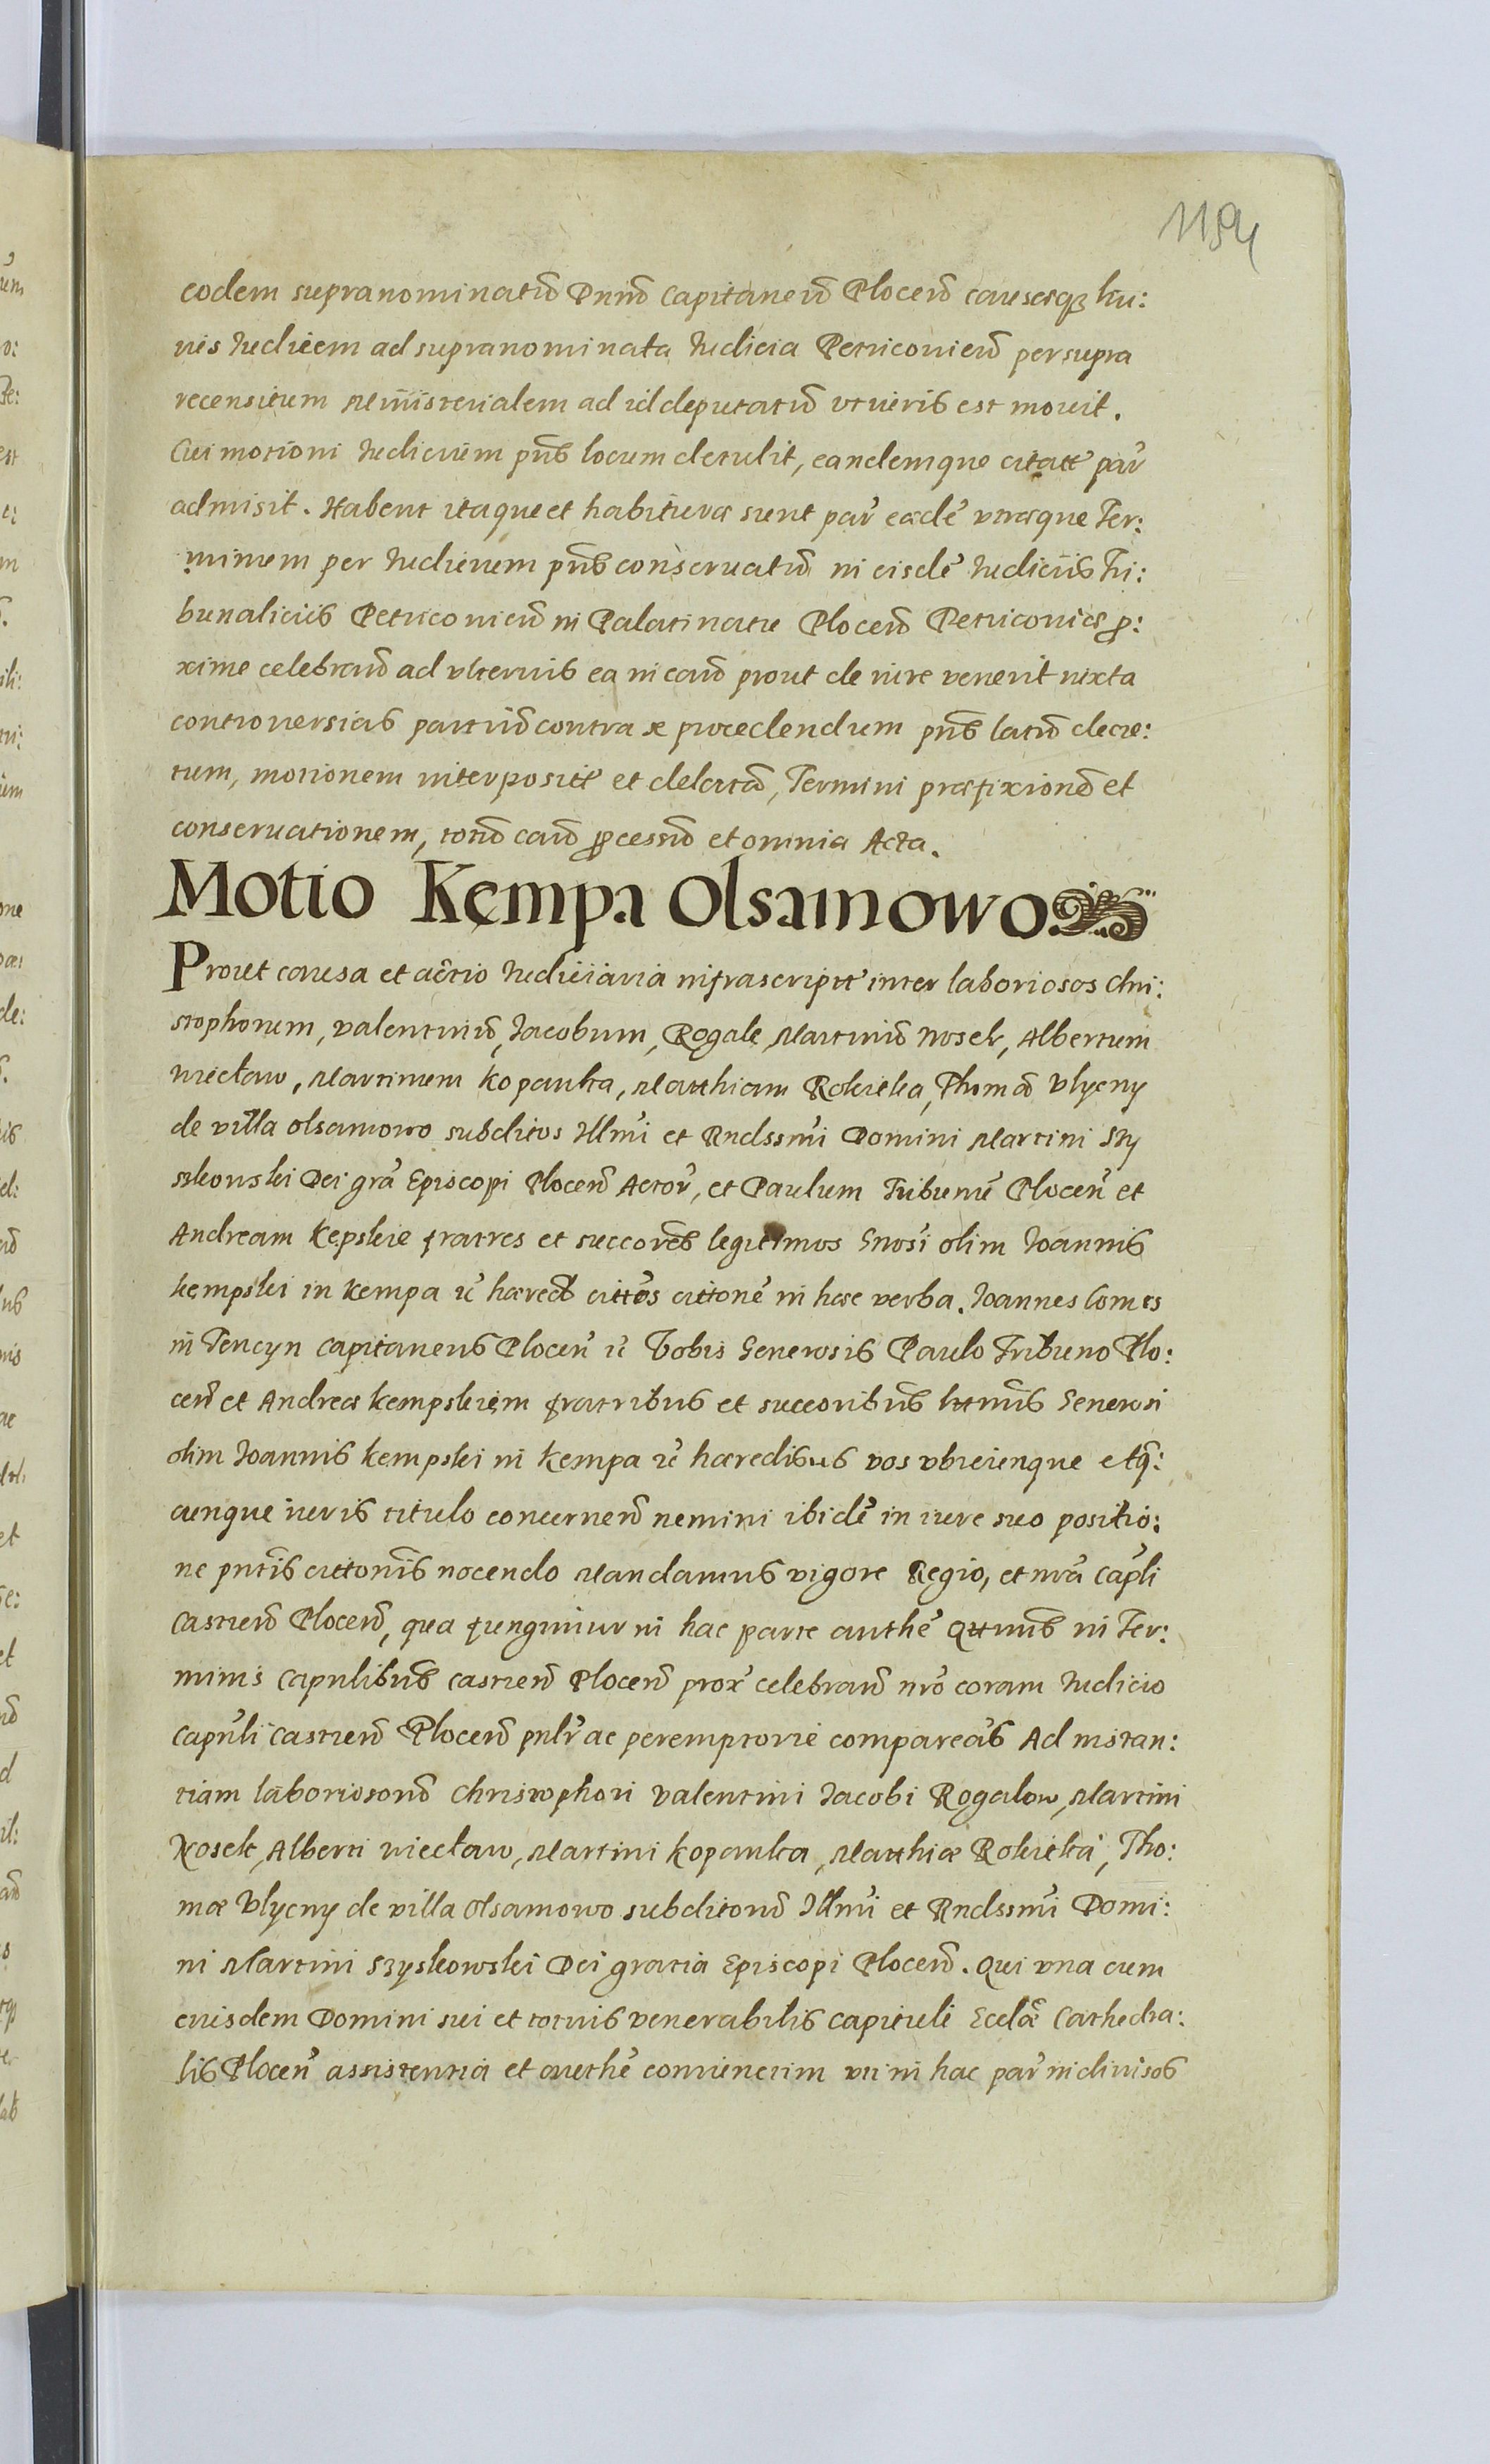 1154
eodem supranominatũ Dnũ Capitaneũ Plocen̄ causaeq3 hu:
ius Iudicem ad supranominata Iudicia Petricovien̄ per supra
recensitum Ministerialem ad id deputatũ ut iuris est movit.
Cui motioni Iudicium pñs locum detulit, eandemque citatt̃ par̃
admisit. Habent itaque et habitura sunt par̃ eaedẽ utraeque Ter:
minum per Iudicium pñs conservatũ in eisdẽ Iudiciis Tri:
bunaliciis Petricovien̄ in Palatinatu Plocen̄ Petricoviae pro:
xime celebran̄ ad ulterius ea in cau̅ prout de iure venerit iuxta
controversias partiũ contra se procedendum pñs latũ decre:
tum, motionem interposit̃ et delatã, Termini praefixionẽ et
conservationem, totũ cau̅ processũ et omnia Acta.
Motio Kempa Olsamowo.
Prout causa et actio Iudiciaria infrascriptt̃ inter laboriosos Chri:
stophorum, Valentinũ, Iacobum, Rogale, Martinũ Nosek, Albertum
Więcław, Martinum Kopanka, Matthiam Rokitka, Thomã Ulycny
de villa Olsamowo subditos Illmi et Rndssmi Domini Martini Szy
szkowski Dei gra̅ Episcopi Plocen̄ Actor̃, et Paulum Tribunũ Plocen̄ et
Andream Kepskie fratres et succores̃ legitimos Gnosi olim Ioannis
Kempski in Kempa ẽ haered̃ cittõs cittonẽ in haec verba. Ioannes Comes
in Tencyn Capitaneus Plocen̄ ẽ Vobis Generosis Paulo Tribuno Plo:
cen̄ et Andreae Kempskiem fratribus et succoribus̃ lttmis̃ Generosi
olim Ioannis Kempski in Kempa ẽ haeredibus vos ubicunque et q̃:
cunque iuris titulo concernen̄ nemini ibidẽ in iure suo positio:
ne pntis̃ cittonis̃ nocendo Mandamus vigore Regio, et nrã Capli
Castren̄ Plocen̄, qua fungimur in hac parte authẽ Qttnus̃ in Ter:
minis Capnlibus̃ Castren̄ Plocen̄ prox̃ celebran̄ nro̅ coram Iudicio
Capnli Castren̄ Plocen̄ pnlr̃ ac peremptorie compareatis̃ Ad instan:
tiam laboriosorũ Christophori Valentini Iacobi Rogalow, Martini
Nosek, Alberti Więcław, Martini Kopanka, Matthiae Rokitka, Tho:
mae Ulycny de villa Olsamowo subditorũ Illmi et Rndssmi Domi:
ni Martini Szyskowski Dei gratia Episcopi Plocen̄. Qui una cum
eiusdem Domini sui et totius venerabilis Capituli Ecclae̅ Cathedra:
lis Plocen̄ assistentia et authẽ coniunctim uti in hac par̃ indivisos